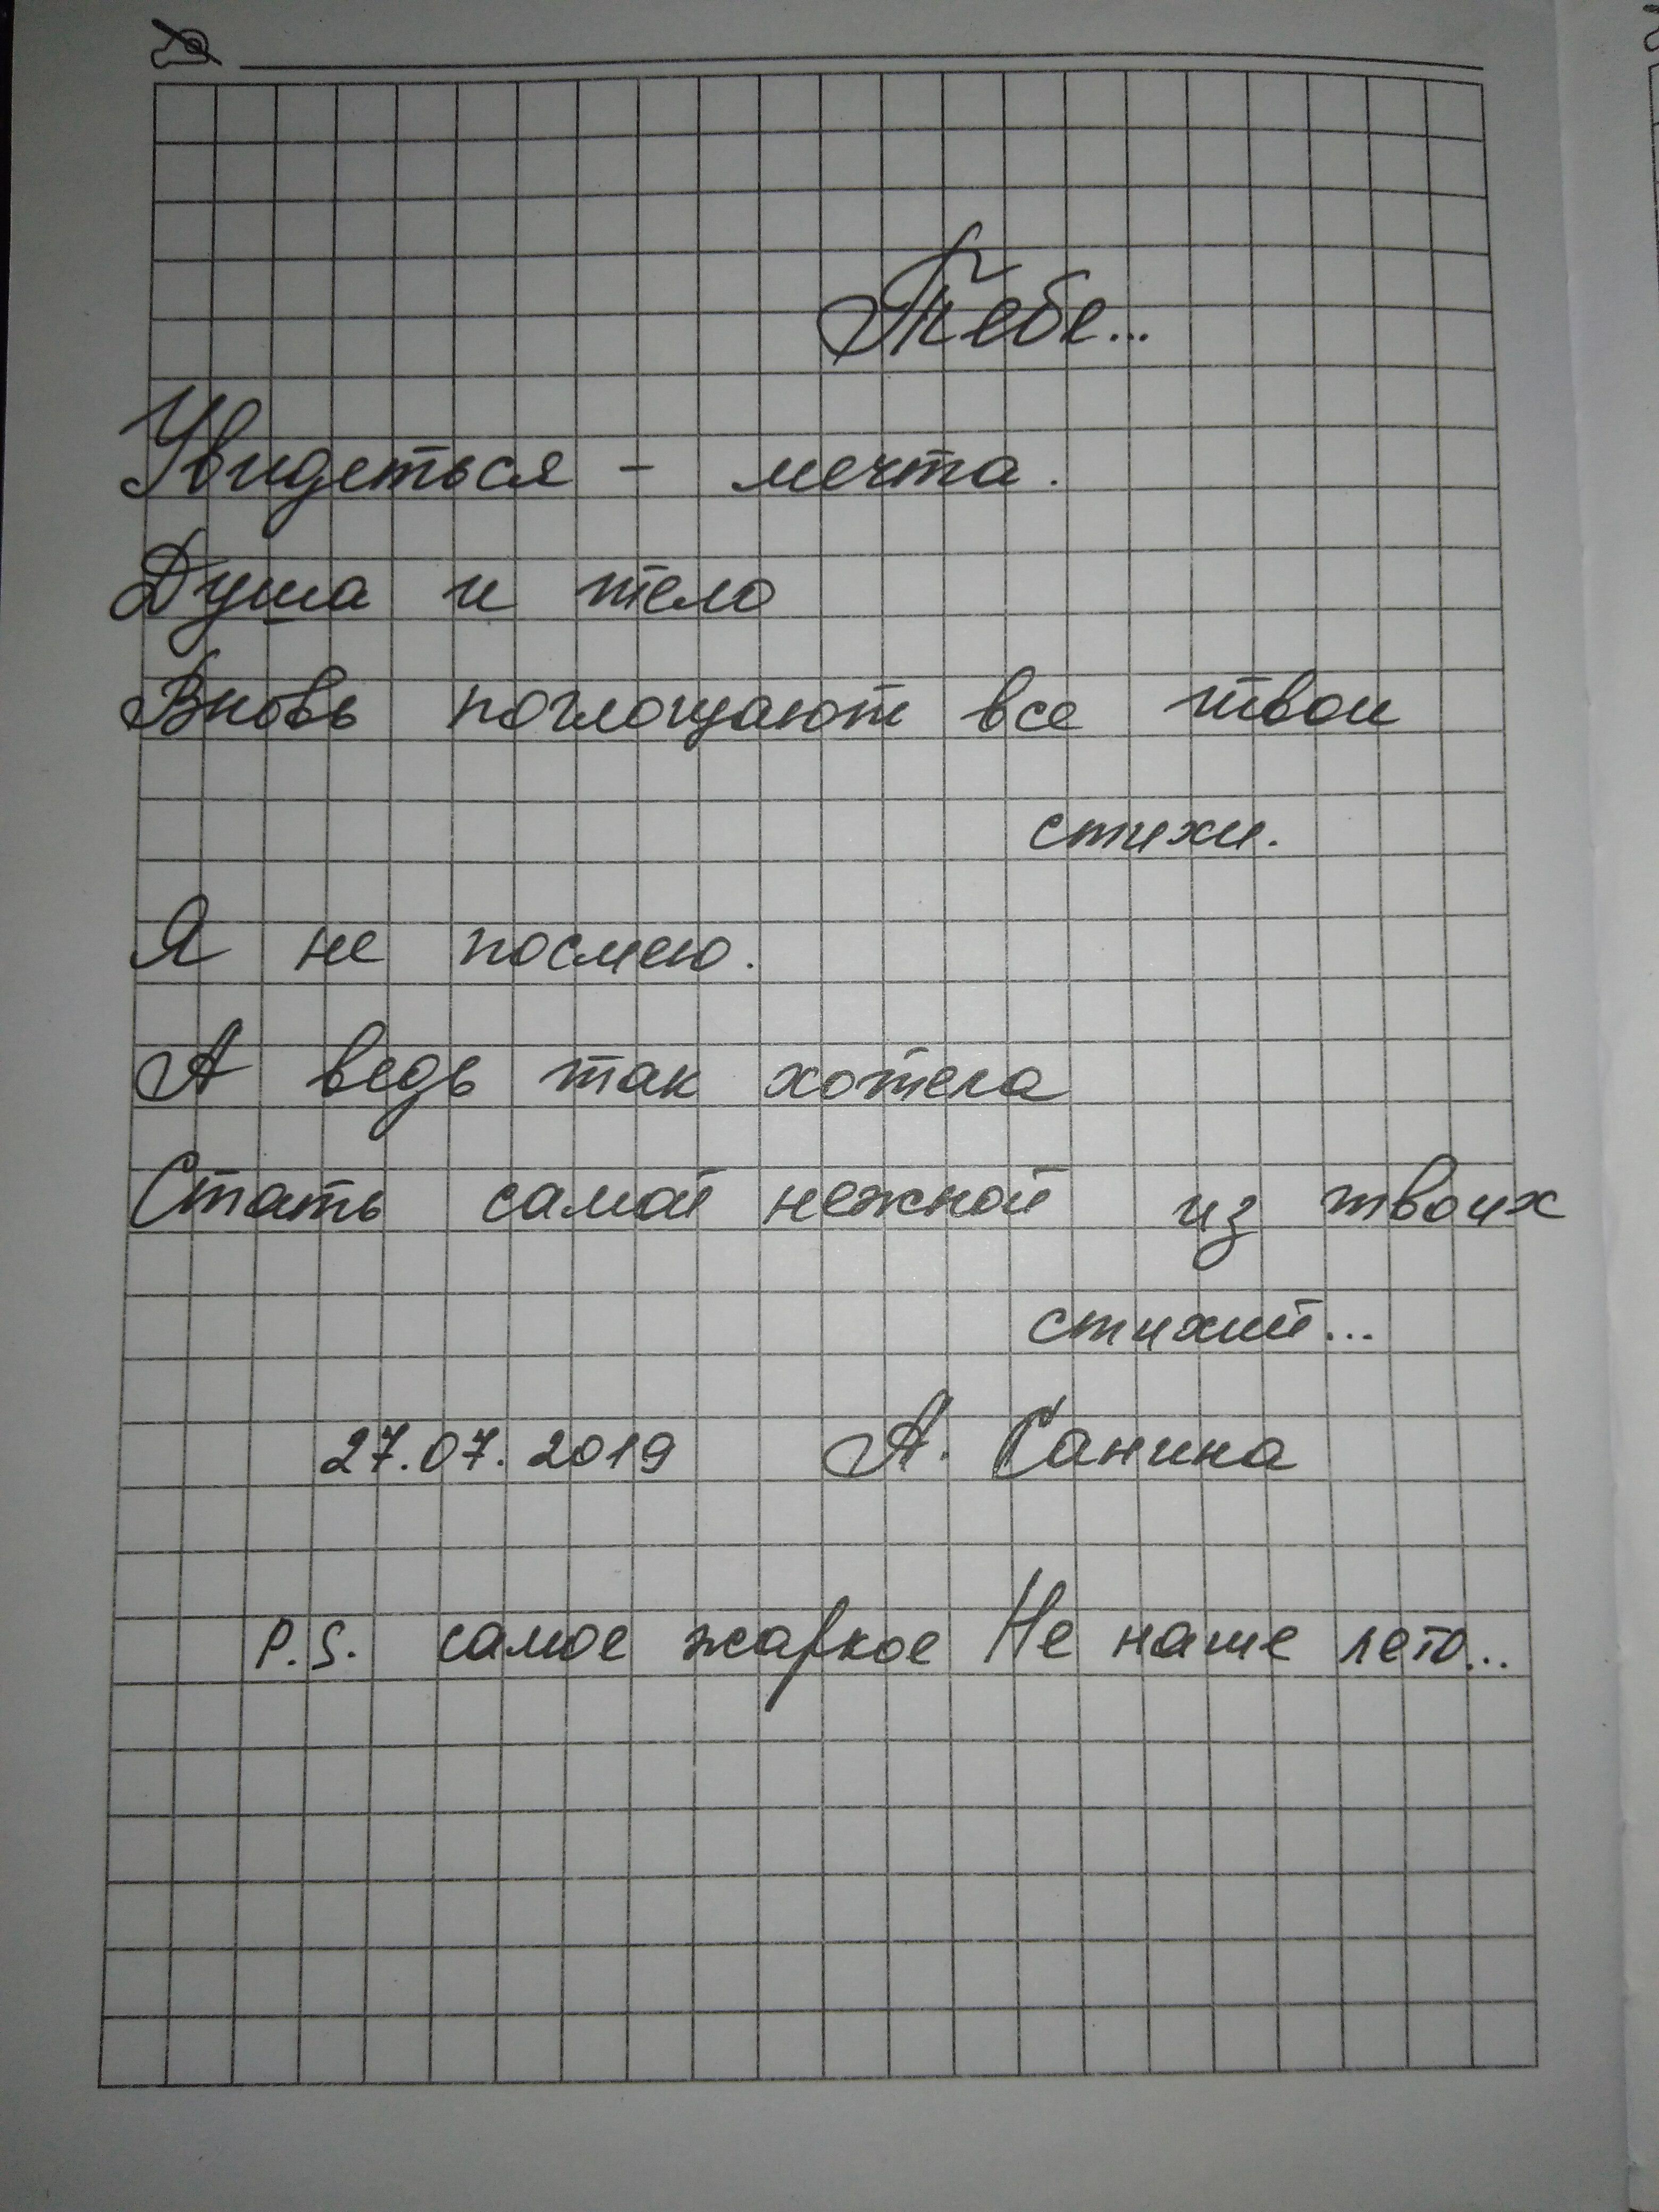 Тебе...
Увидеться - мечта.
Душа и тело
Вновь поглощают все твои
стихи.
Я не посмею.
А ведь так хотела
Стать самой нежной из твоих
стихий...
27.07.2019 А. Санина
P.S. самое жаркое Не наше лето...